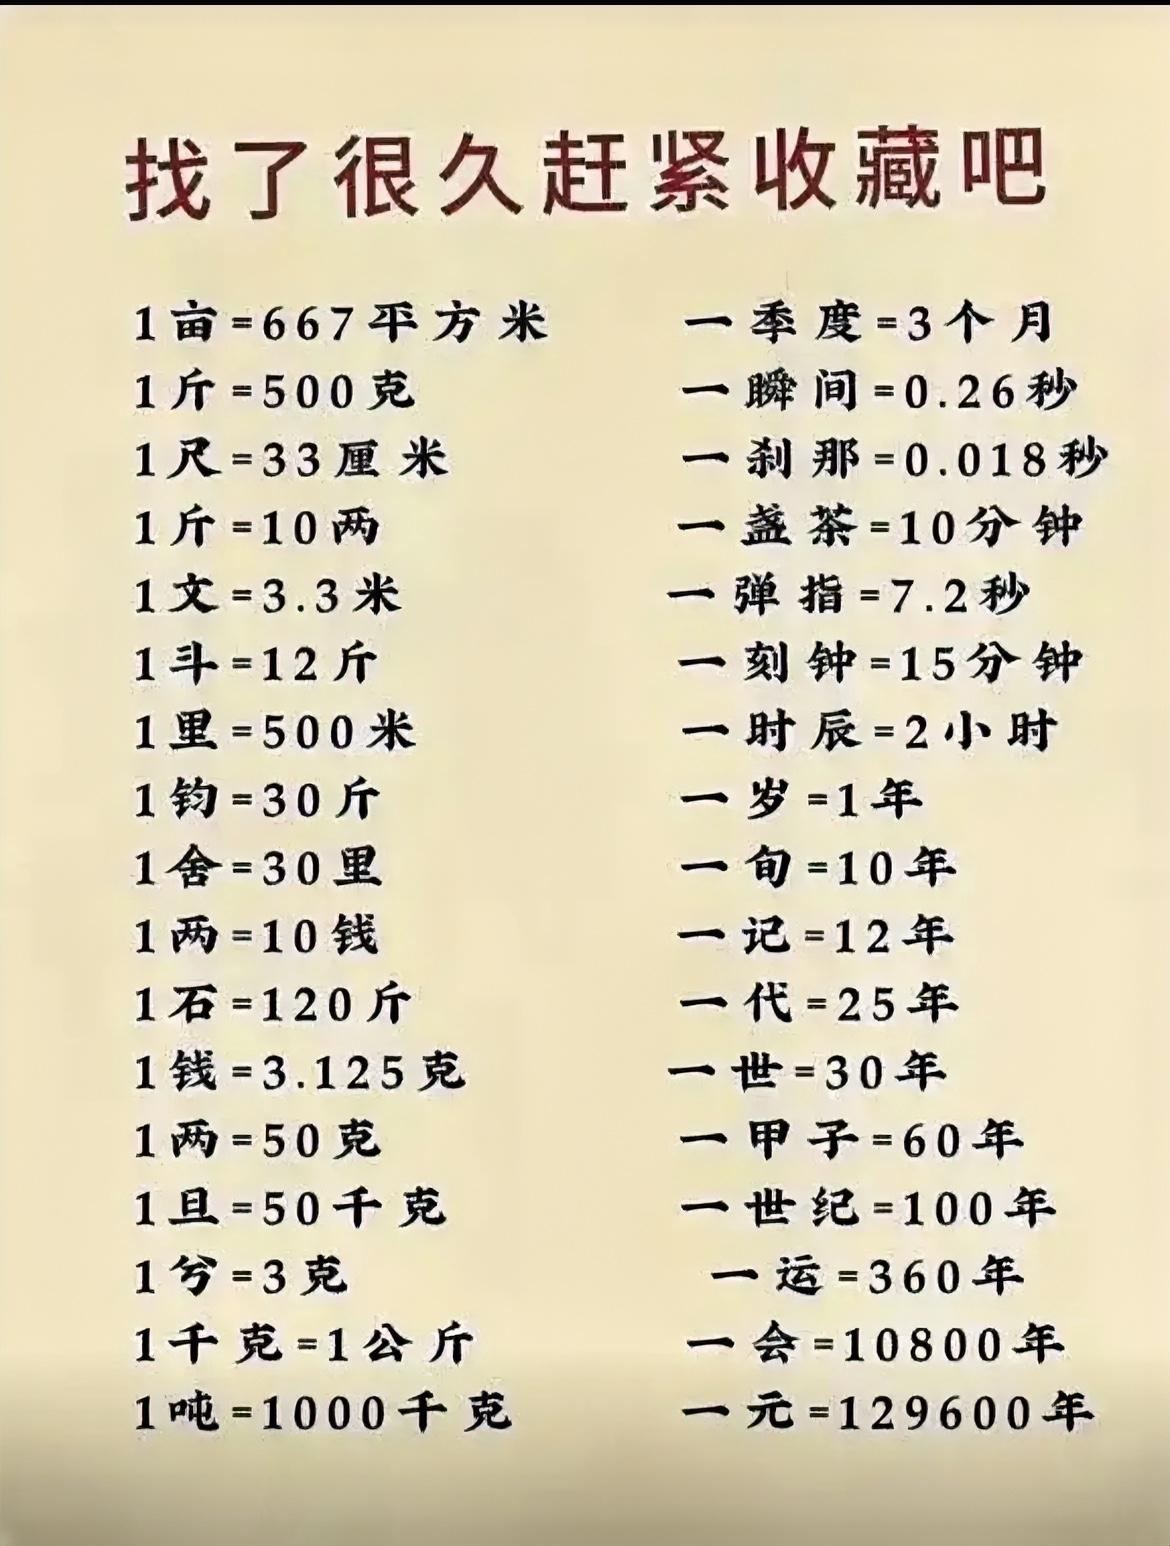 找了很久赶紧收藏吧
1亩=667平方米
1斤=500克
1尺=33厘米
1斤=10两
1文=3.3米
1斗=12斤
1里=500米
1钧=30斤
1舍=30里
1两=10钱
1石=120斤
1钱=3.125克
1两=50克
1旦=50千克
1兮=3克
1千克=1公斤
1吨=1000千克
一季度=3个月
一瞬间=0.26秒
一刹那=0.018秒
一盏茶=10分钟
一弹指=7.2秒
一刻钟=15分钟
一时辰=2小时
一岁=1年
一旬=10年
一记=12年
一代=25年
一世=30年
一甲子=60年
一世纪=100年
一运=360年
一会=10800年
一元=129600年